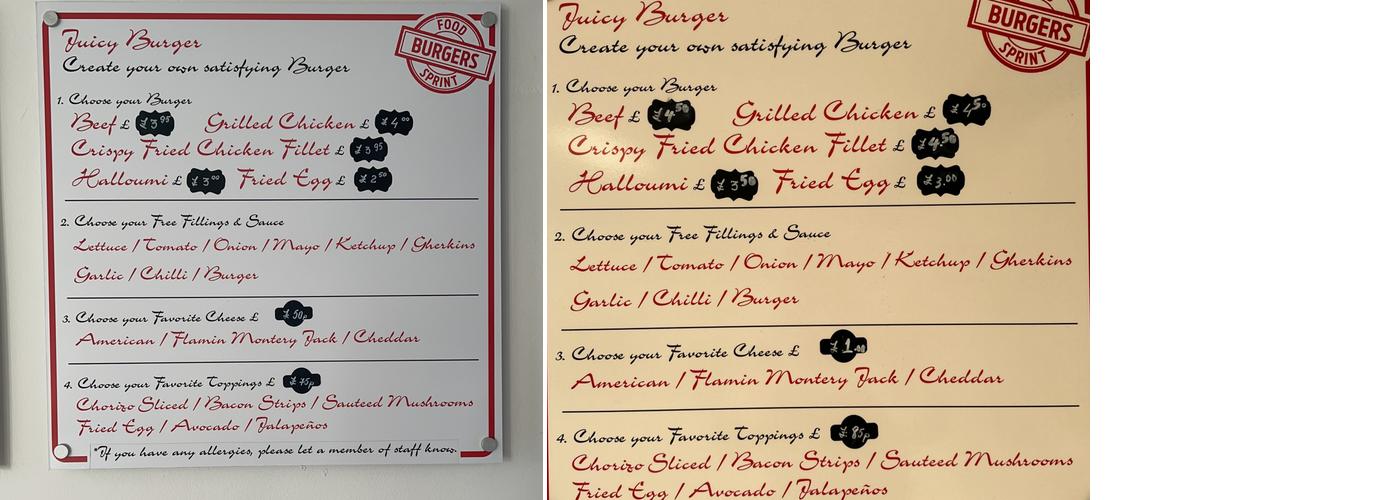 Juicy Burger
Create your own satisfying Burger
FOOD
BURGERS
SPRINT
1. Choose your Burger
Beef £ £3.95 Grilled Chicken £ £4.00
Crispy Fried Chicken Fillet £ £3.95
Halloumi £ £3.00 Fried Egg £ £2.50
2. Choose your Free Fillings & Sauce
Lettuce / Tomato / Onion / Mayo / Ketchup / Gherkins
Garlic / Chilli / Burger
3. Choose your Favorite Cheese £ £50p
American / Flamin Montery Jack / Cheddar
4. Choose your Favorite Toppings £ £75p
Chorizo Sliced / Bacon Strips / Sauteed Mushrooms
Fried Egg / Avocado / Jalapeños
*If you have any allergies, please let a member of staff know.
Juicy Burger
Create your own satisfying Burger
BURGERS
SPRINT
1. Choose your Burger
Beef £ £4.50 Grilled Chicken £ £4.50
Crispy Fried Chicken Fillet £ £4.50
Halloumi £ £3.50 Fried Egg £ £3.00
2. Choose your Free Fillings & Sauce
Lettuce / Tomato / Onion / Mayo / Ketchup / Gherkins
Garlic / Chilli / Burger
3. Choose your Favorite Cheese £ £1.00
American / Flamin Montery Jack / Cheddar
4. Choose your Favorite Toppings £ £85p
Chorizo Sliced / Bacon Strips / Sauteed Mushrooms
Fried Egg / Avocado / Jalapeños